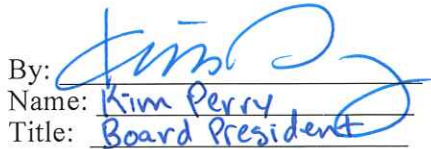 By: Kim Perry
Name: Kim Perry
Title: Board President